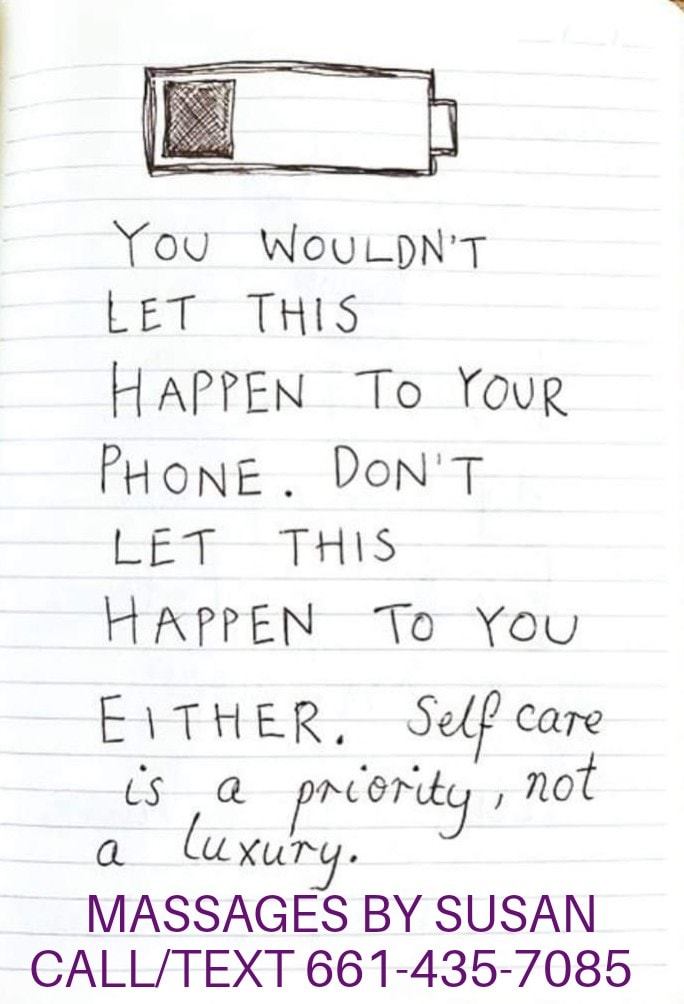 YOU WOULDN'T
LET THIS
HAPPEN TO YOUR
PHONE. DON'T
LET THIS
HAPPEN TO YOU
EITHER. Self care
is a priority, not
a luxury.
MASSAGES BY SUSAN
CALL/TEXT 661-435-7085